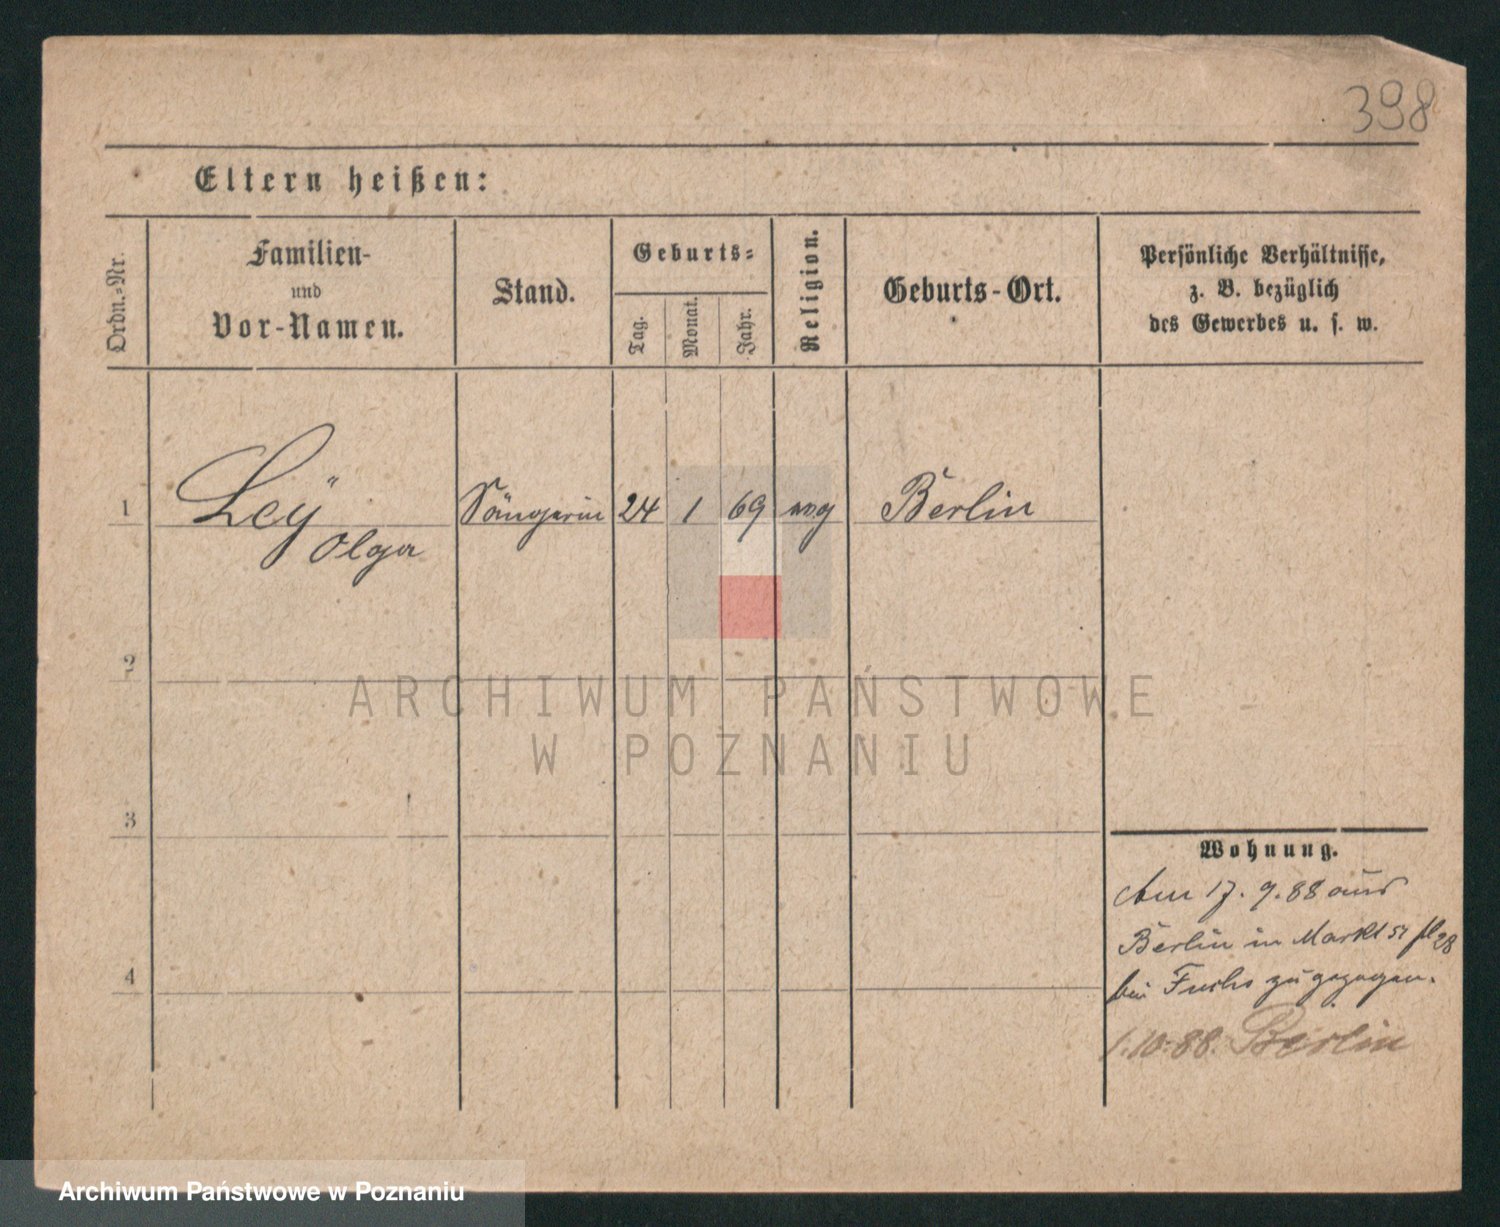 398
Eltern heißen:
Ordn.-Nr.
Familien-
und
Vor-Namen.
Stand.
Geburts-
Tag.
Monat.
Jahr.
Religion.
Geburts-Ort.
Persönliche Verhältnisse,
z. B. bezüglich
des Gewerbes u. s. w.
1
Leÿ
Olga
Sängerin
24
1
69
evg
Berlin
2
ARCHIWUM PAŃSTWOWE
W POZNANIU
3
4
Wohnung.
Am 17. 9. 88 aus
Berlin in Markt 28
bei Fuchs zugezogen.
1.10.88. Berlin
Archiwum Państwowe w Poznaniu